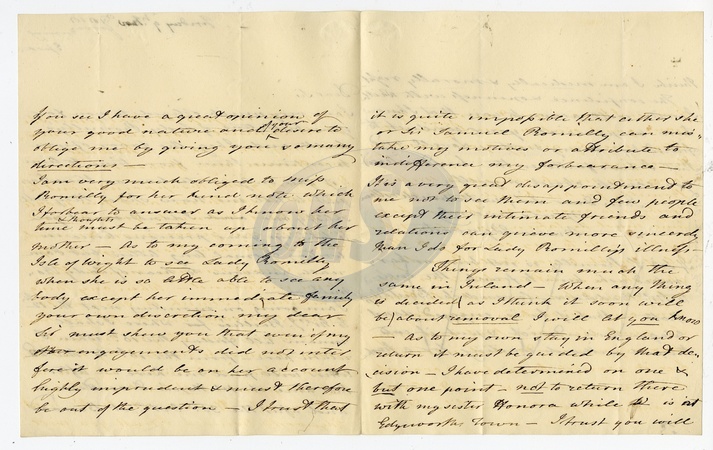 You see I have a great opinion of
your good nature and your desire to
oblige me by giving you so many
directions —
I am very much obliged to Miss
Romilly for her kind note which
I forbear to answer as I know her
time & thoughts must be taken up about her
mother — As to my coming to the
Isle of Wight to see Lady Romilly
when she is so little able to see any
body except her immediate family
your own discretion my dear
Sir must shew you that even if my
engagements did not inter
fere it would be on her account
highly imprudent & must therefore
be out of the question — I trust that
it is quite impossible that either she
or Sir Samuel Romilly can mis-
take my motives or attribute to
indifference my forbearance —
It is a very great disappointment to
me not to see them and few people
except their intimate friends and
relations can grieve more sincerely
than I do for Lady Romilly's illness —
Things remain much the
same in Ireland — When any thing
is decided, as I think it soon will
be, about removal I will let you know
— as to my own stay in England or
return it must be guided by that de-
cision — I have determined on one &
but one point — not to return there
with my sister Honora while is at
Edgeworths Town — I trust you will